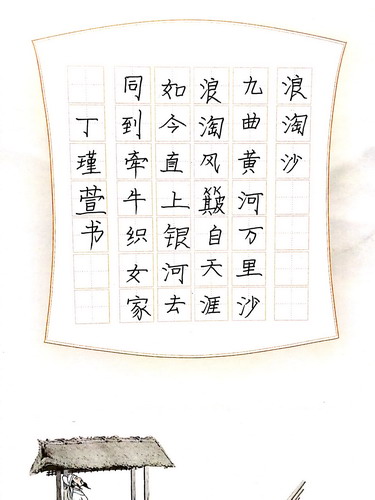 浪淘沙
九曲黄河万里沙
浪淘风簸自天涯
如今直上银河去
同到牵牛织女家
丁瑾萱书